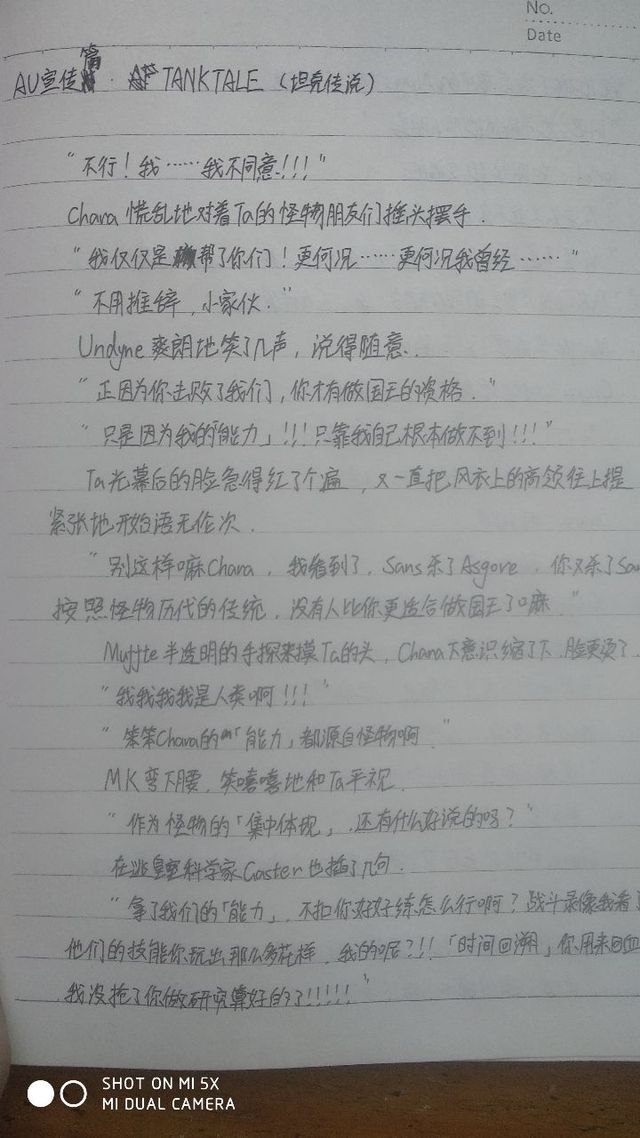 No.
Date
AU宣传篇 · TANKTALE (坦克传说)
"不行!我……我不同意!!!"
Chara 慌乱地对着Ta的怪物朋友们摇头摆手.
"我仅仅是帮了你们!更何况……更何况我曾经……"
"不用推辞,小家伙."
Undyne 爽朗地笑了几声,说得随意.
"正因为你击败了我们,你才有做国王的资格."
"只是因为我的「能力」!!!只靠我自己根本做不到!!!"
Ta光幕后的脸急得红了个遍,又一直把风衣上的高领往上提
紧张地开始语无伦次.
"别这样嘛Chara,我看到了,Sans杀了Asgore,你又杀了San
按照怪物历代的传统,没有人比你更适合做国王了嘛"
半透明的手探来摸Ta的头,Chara下意识缩了下,脸更烫了.
"我我我我是人类啊!!!"
"笨笨Chara的「能力」都源自怪物啊"
MK弯下腰,笑嘻嘻地和Ta平视.
"作为怪物的「集中体现」,还有什么好说的吗?"
在逃皇室科学家Gaster也插了几句.
"拿了我们的「能力」,不把你好好练怎么行啊?战斗录像我看了
他们的技能你玩出那么多花样,我的呢?!!「时间回溯」你用来回血
我没抢了你做研究算好的了!!!!!"
SHOT ON MI 5X
MI DUAL CAMERA